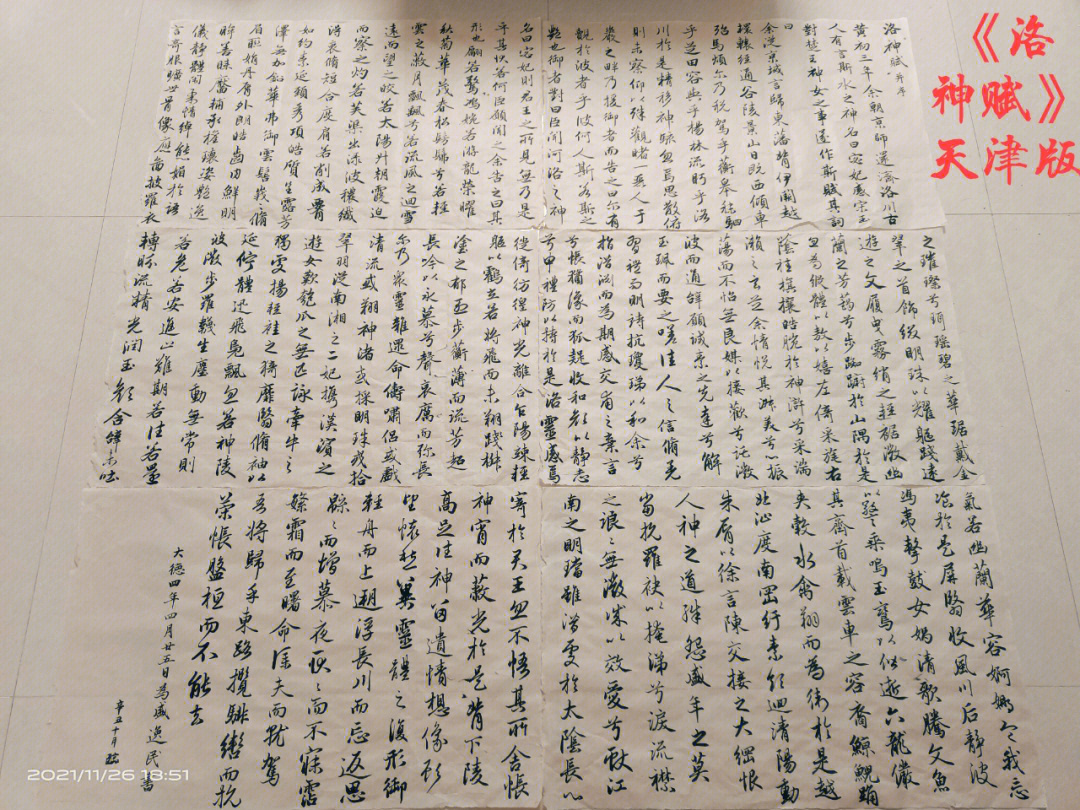 《洛
神赋》
天津版
洛神賦 并序
黄初三年余朝京師還濟洛川古
人有言斯水之神名曰宓妃感宋玉
對楚王神女之事遂作斯賦其詞
曰
余從京域言歸東藩背伊闕越
轘轅經通谷陵景山日既西傾車
殆馬煩尔乃税駕乎蘅皋秣駟
乎芝田容與乎楊林流眄乎洛
川於是精移神駭忽焉思散俯
則未察仰以殊觀睹一麗人于
巖之畔乃援御者而告之曰尔有
覿於彼者乎彼何人斯若斯之
艷也御者對曰臣聞河洛之神
名曰宓妃則君王之所見無乃是
乎其狀若何臣願聞之余告之曰其
形也翩若驚鴻婉若游龍榮曜
秋菊華茂春松髣髴兮若輕
雲之蔽月飄飖兮若流風之迴雪
遠而望之皎若太陽升朝霞迫
而察之灼若芙蕖出渌波穠纖
得衷脩短合度肩若削成腰
如約素延頸秀項皓質呈露芳
澤無加鉛華弗御雲髻峩峩脩
眉聯娟丹脣外朗皓齒内鮮明
眸善睞靨輔承權瓌姿艷逸
儀静體閑柔情綽態媚於語
言奇服曠世骨像應圖披羅衣
之璀璨兮珥瑶碧之華琚戴金
翠之首飾綴明珠以耀軀踐遠
遊之文履曳霧綃之輕裾微幽
蘭之芳藹兮步踟蹰於山隅於是
忽焉縱體以遨以嬉左倚采旄右
陰桂旗攘皓腕於神滸兮采湍
瀨之玄芝余情悦其淑美兮心振
蕩而不怡無良媒以接歡兮託微
波而通辭願誠素之先達兮解
玉珮而要之嗟佳人之信脩羌
習禮而明詩抗瓊珶以和余兮
指潛淵而為期感交甫之棄言
兮悵猶豫而狐疑收和顔以静志
兮申禮防以持於是洛靈感焉
徙倚彷徨神光離合乍陽竦輕
軀以鶴立若將飛而未翔踐椒
塗之郁烈步蘅薄而流芳超
長吟以永慕兮聲哀厲而弥長
尔乃衆靈雜遝命儔嘯侣或戲
清流或翔神渚或採明珠或拾
翠羽從南湘之二妃携漢濱之
遊女歎匏瓜之無匹詠牽牛之
獨處揚輕袿之猗靡翳脩袖以
延佇體迅飛鳧飄忽若神陵
波微步羅襪生塵動無常則
若危若安進止難期若往若還
轉眄流精光潤玉顔含辭未吐
氣若幽蘭華容婀娜令我忘
飡於是屏翳收風川后静波
馮夷擊鼓女媧清歌騰文魚
以警乘鳴玉鸞以偕逝六龍儼
其齊首載雲車之容裔鯨鯢踊
夾轂水禽翔而為衛於是越
北沚度南岡紆素領迴清陽動
朱脣以徐言陳交接之大綱恨
人神之道殊怨盛年之莫
當抗羅袂以掩涕兮淚流襟
之浪浪無微情以效愛兮獻江
南之明璫雖潛處於太陰長心
寄於君王忽不悟其所舍悵
神宵而蔽光於是背下陵
高足往神留遺情想像顧
望懷愁冀靈體之復形御
輕舟而上遡浮長川而忘返思
緜緜而增慕夜耿耿而不寐霑
繁霜而至曙命僕夫而就駕
吾將歸乎東路攬騑轡而抗
策悵盤桓而不能去
大德四年四月廿五日為盛逸民書
辛丑十月臨
2021/11/26 18:51